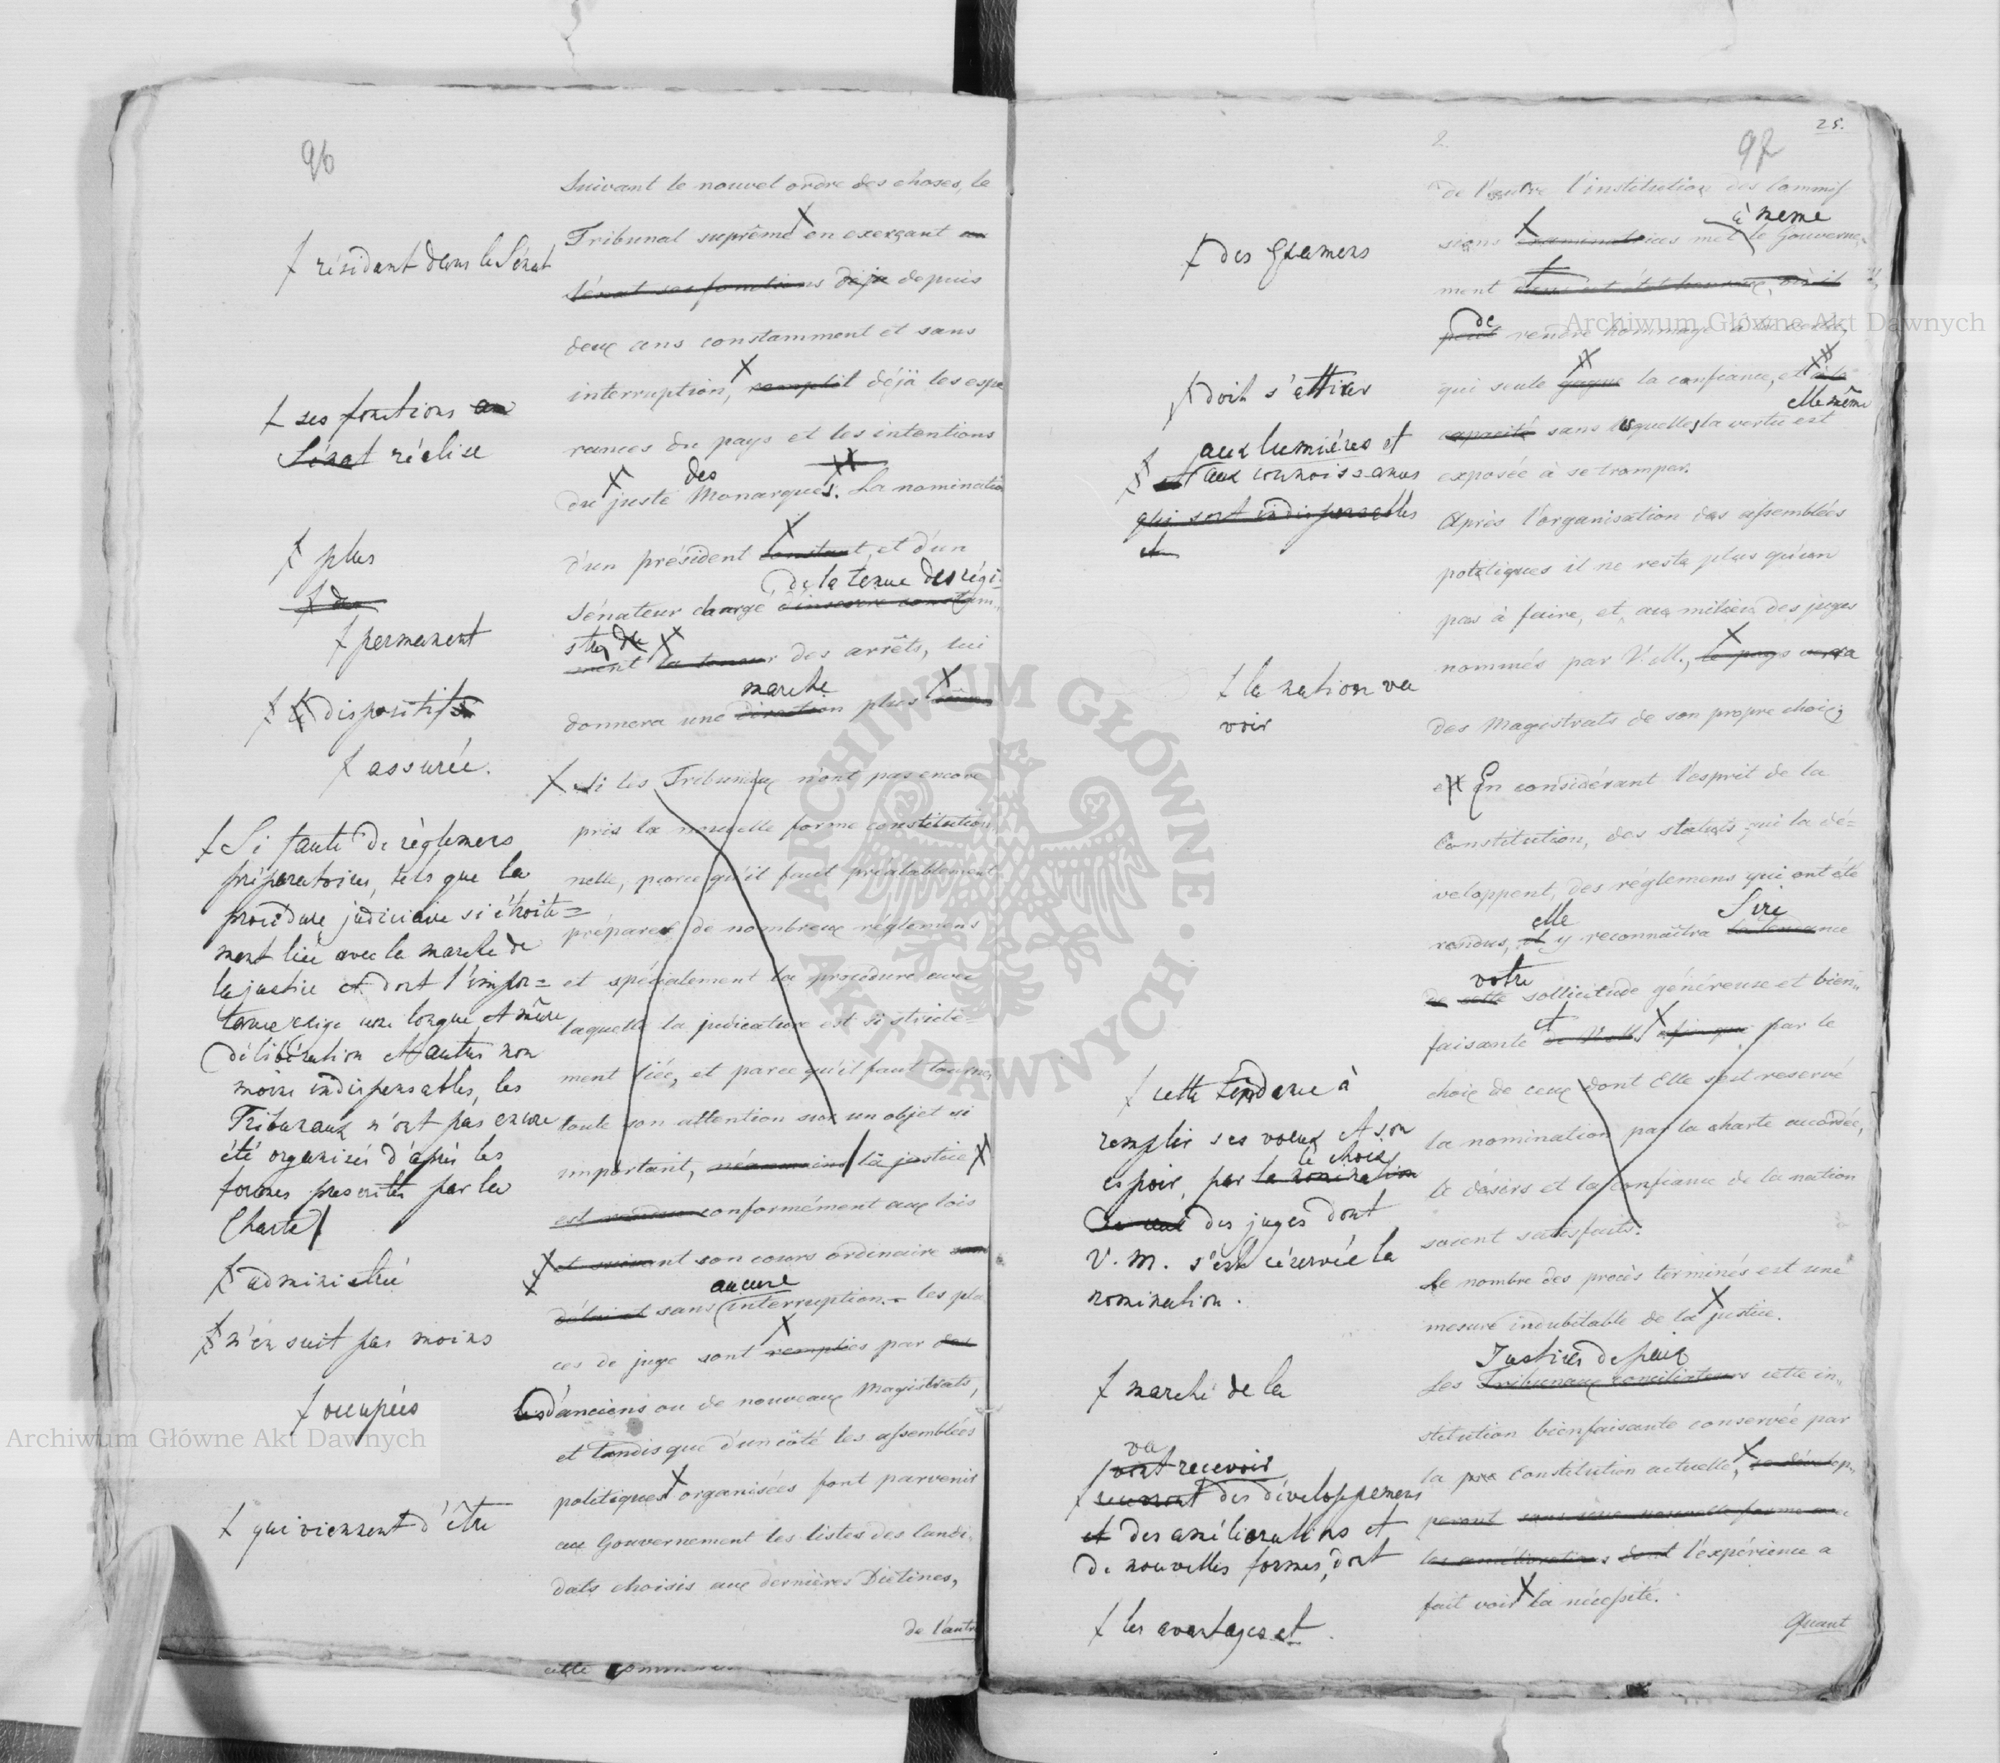 96
Suivant le nouvel ordre des choses, le
Tribunal suprême en exerçant au
Sénat ses fonctions déjà depuis
deux ans constamment et sans
interruption, remplit déjà les espé
rances du pays et les intentions
des
du juste Monarque. La nomination
d'un président constant, et d'un
de la tenue des régi-
Sénateur chargé d'inserer constam-
stres de
ment la teneur des arrêts, lui
marche
donnera une direction plus
Si les Tribunaux n'ont pas encore
pris la nouvelle forme constitution
nelle, parce qu'il faut préalablement
préparer de nombreux réglemens
et spécialement la procédure avec
laquelle la judicature est si stricte-
ment liée, et parce qu'il faut tourner
toute son attention sur un objet si
important, néanmoins la justice
est rendue conformément aux lois
et suivant son cours ordinaire sans
aucune
sans interruption. les pla
ces de juge sont remplies par des
d'anciens ou de nouveaux Magistrats,
et tandis que d'un côté les assemblées
politiques organisées font parvenir
au Gouvernement les listes des Candi-
dats choisis aux dernières Diétines,
de l'autre
résidant dans le Sénat
ses fonctions au
Sénat réalise
plus
permanent
dispositifs
assurée.
Si faute de règlemens
préparatoires, tels que la
procédure judiciaire si étroite=
ment liée avec la marche de
la justice et dont l'impor=
tance exige une longue et mûre
délibération et autres non
moins indispensables, les
Tribunaux n'ont pas encore
été organisés d'après les
formes prescrites par la
Charte
administrée
n'en suit pas moins
occupées
qui viennent d'être
cette
25.
2
97
de l'autre l'institution des Commis
à même
sions examinatrices met le Gouverne-
ment dans cet état heureux, où il
de
peut rendre hommage à la vertu,
qui seule gagne la confiance, et à la
elle même
capacité sans lesquelles la vertu est
exposée à se tromper.
Après l'organisation des assemblées
politiques il ne reste plus qu'un
pas à faire, et, au milieu des juges
nommés par V.M., le pays verra
des Magistrats de son propre choix,
En considérant l'esprit de la
Constitution, des statuts qui la dé=
veloppent, des réglemens qui ont été
elle Sire
rendus, et y reconnaîtra la tendance
votre
de cette sollicitude généreuse et bien-
et
faisante de V.M. afin que par le
choix de ceux dont Elle s'est reservé
la nomination par la charte accordée,
le désirs et la confiance de la nation
soient satisfaits.
Le nombre des procès terminés est une
mesure indubitable de la justice.
Justices de paix
Les Tribunaux conciliateurs cette in-
stitution bienfaisante conservée par
la Constitution actuelle, se dévelop-
peront sous une nouvelle forme avec
les améliorations dont l'expérience a
fait voir la nécessité.
Quant
des Examens
doit s'attirer
aux lumières et
et aux connoissances
qui sont indispensables
et
la nation va
voir
cette tendance à
remplir ses vœux et son
le choix
espoir, par la nomination
des juges dont
V. M. s'est réservée la
nomination.
marche de la
va
vont recevoir
des développemens
et des améliorations et
de nouvelles formes, dont
les avantages et
Archiwum Główne Akt Dawnych
Archiwum Główne Akt Dawnych
ARCHIWUM GŁÓWNE AKT DAWNYCH